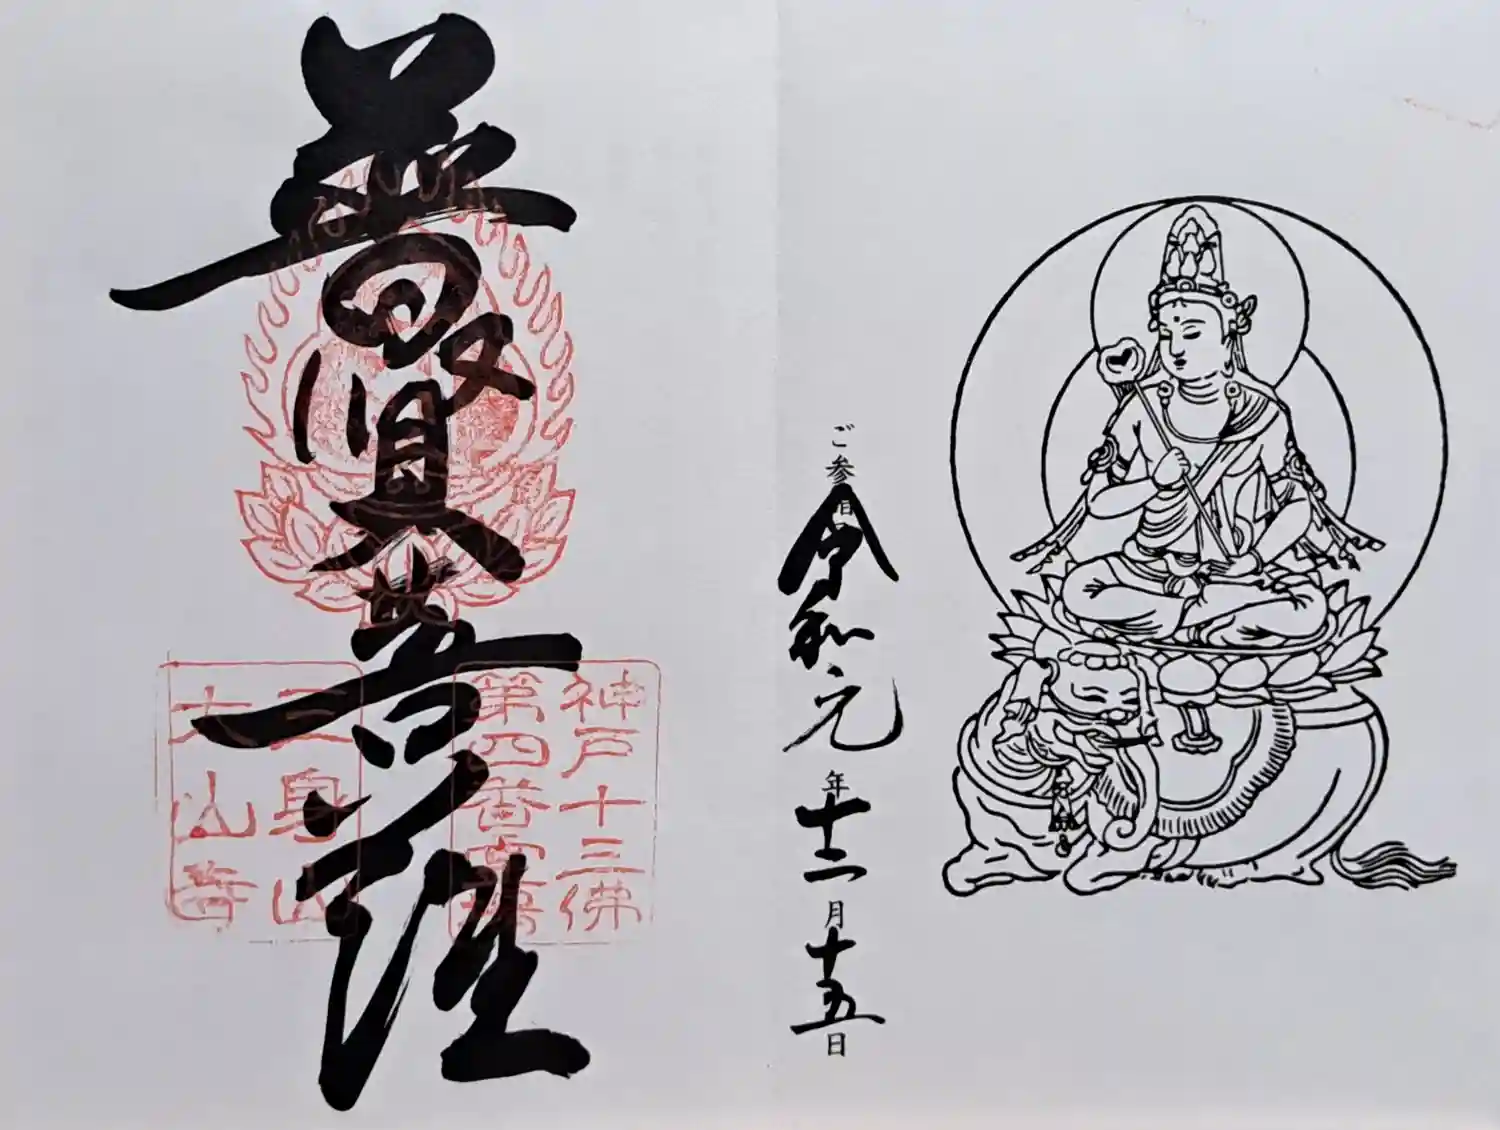 ご参拝日
令和元年十二月十五日
普賢菩薩
神戸十三佛
第四番霊場
三身山
太山寺